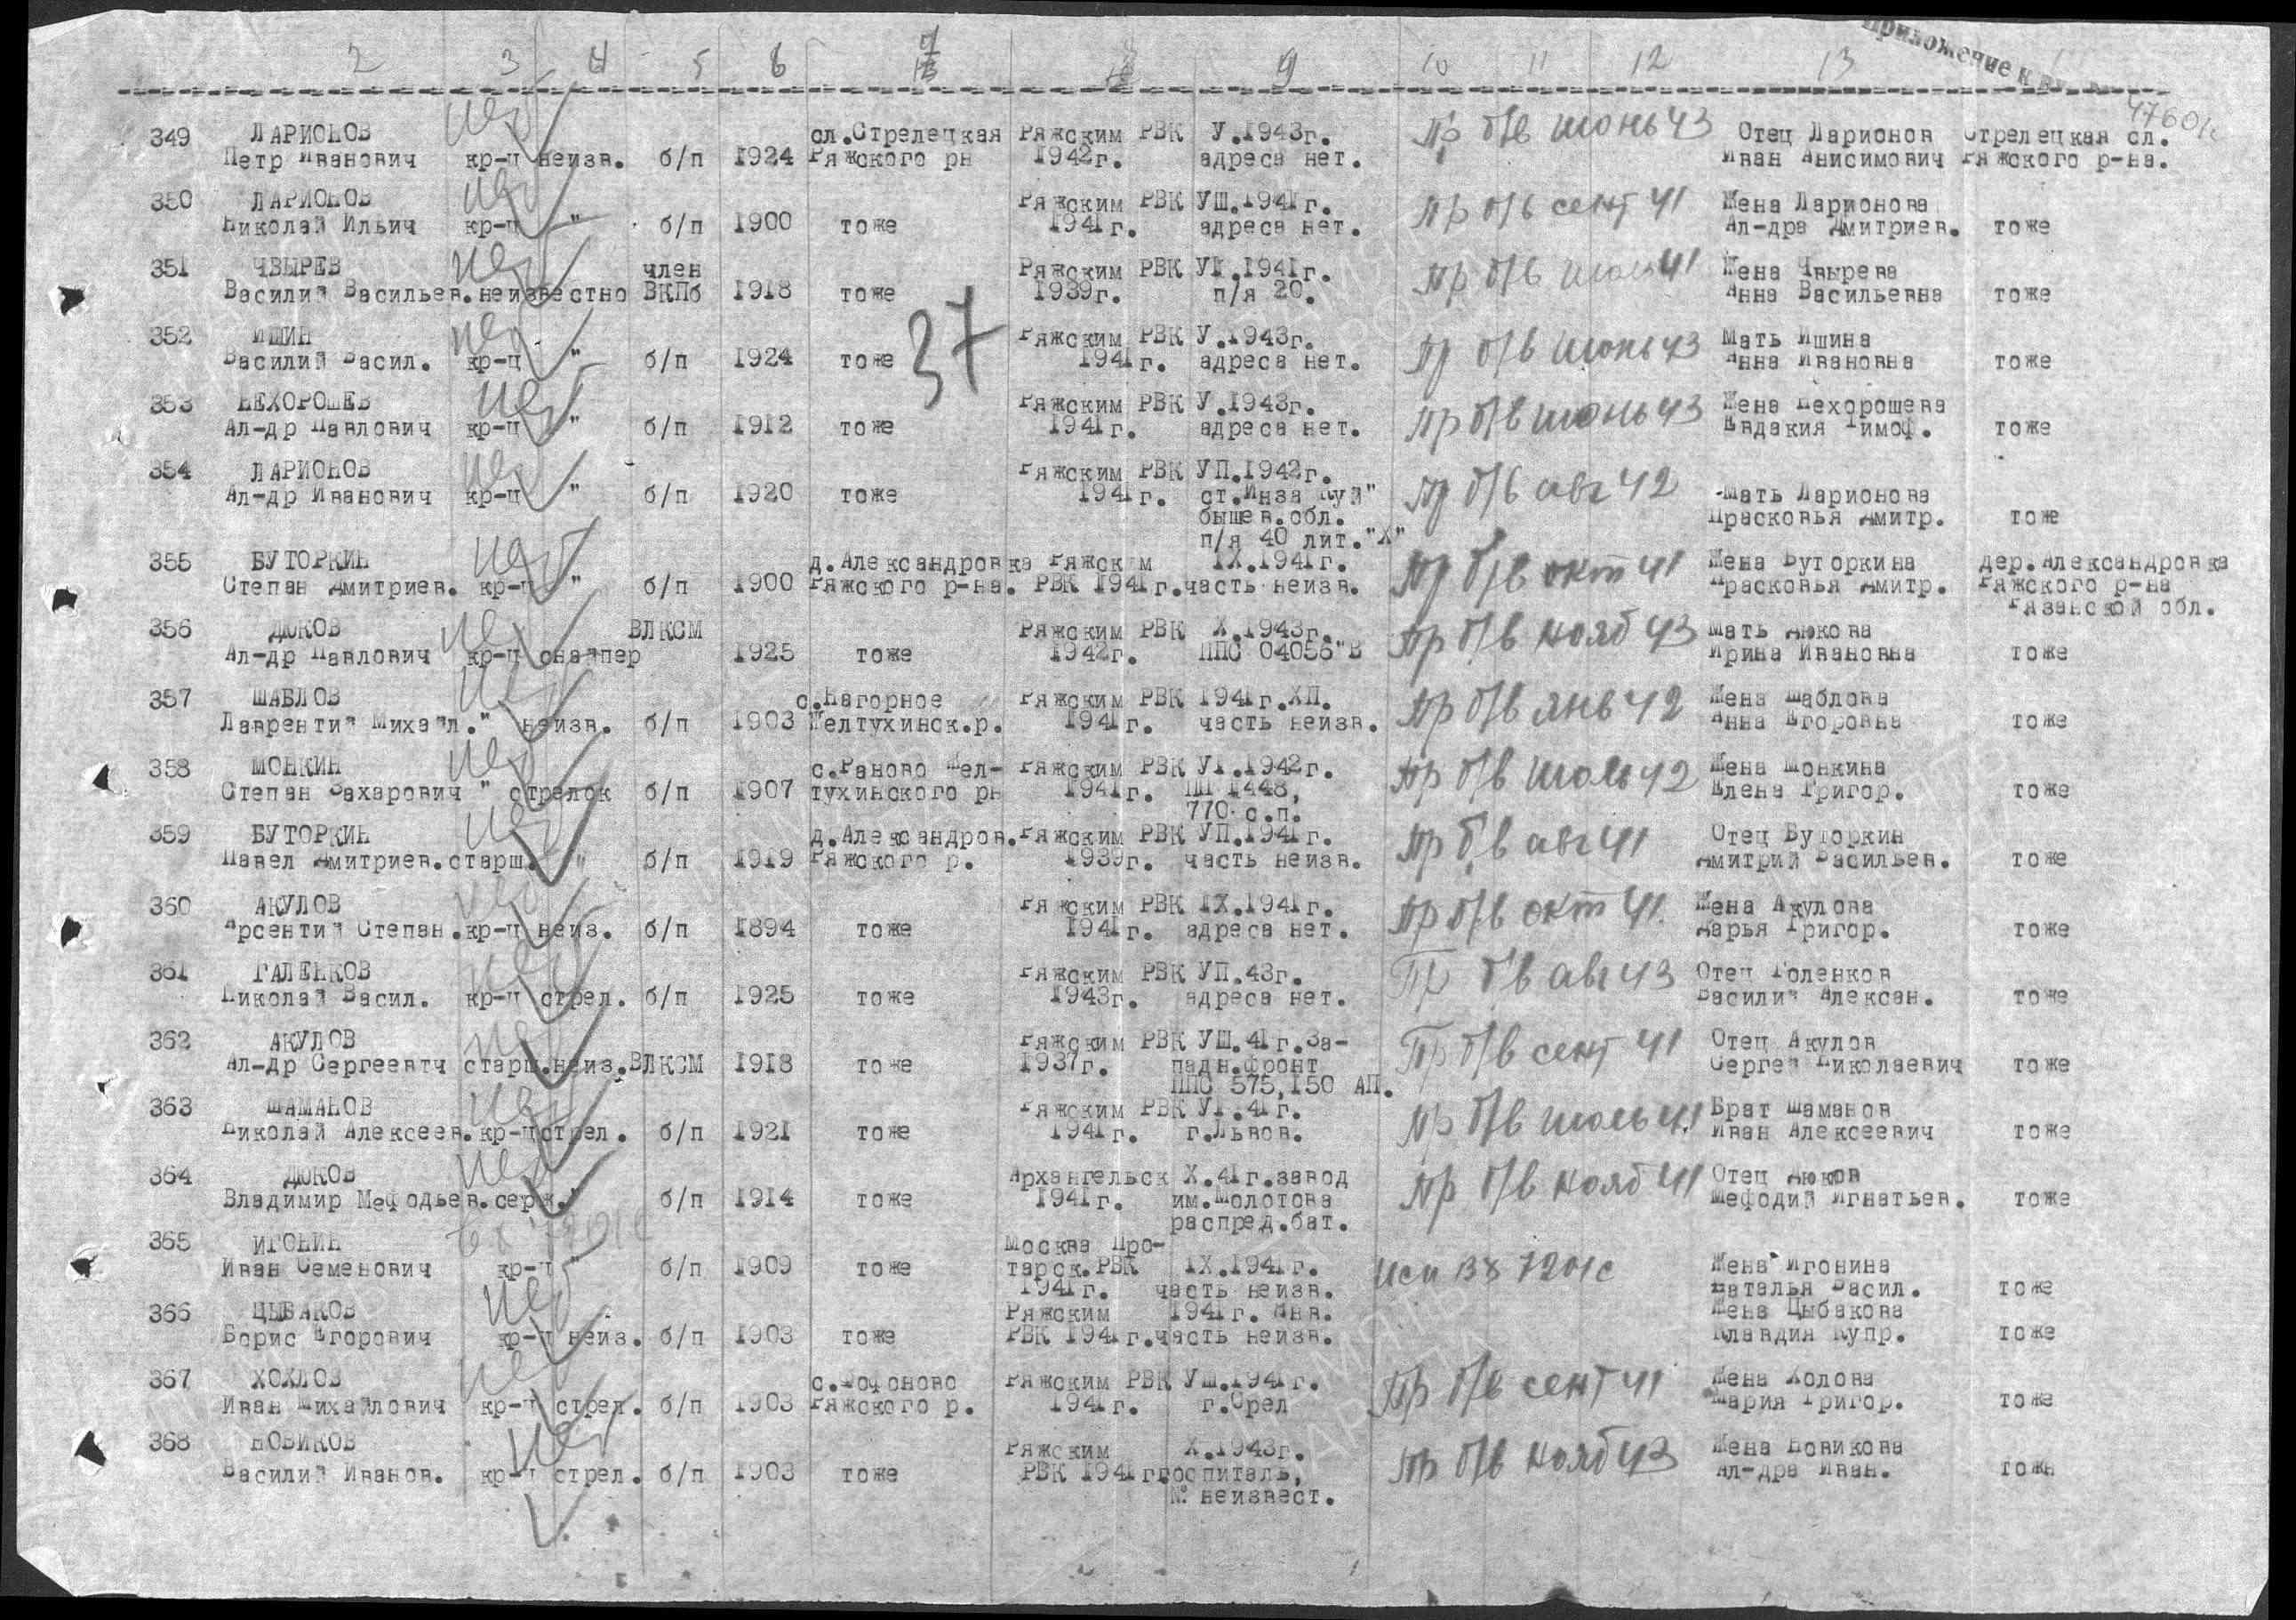 Приложение к
47601с
2 3 4 5 6 7 8 9 10 11 12 13
349 ЛАРИОНОВ сл.Стрелецкая Ряжским РВК У.1943г. Пр б/в июнь 43 Отец Ларионов Стрелецкая сл.
Петр Иванович кр-ц неизв. б/п 1924 Ряжского рн 1942г. адреса нет. Иван Анисимович Ряжского р-на.
350 ЛАРИОНОВ Ряжским РВК УШ.1941г. Пр б/в сент 41 Жена Ларионова
Николай Ильич кр-ц " б/п 1900 тоже 1941г. адреса нет. Ал-дра Дмитриев. тоже
351 ЧВЫРЕВ член Ряжским РВК УІ.1941г. Пр б/в июль 41 Жена Чвырева
Василий Васильев. неизвестно ВКПб 1918 тоже 1939г. п/я 20. Анна Васильевна тоже
37
352 ИШИН Ряжским РВК У.1943г. Пр б/в июнь 43 Мать Ишина
Василий Васил. кр-ц " б/п 1924 тоже 1941г. адреса нет. Анна Ивановна тоже
353 НЕХОРОШЕВ Ряжским РВК У.1943г. Пр б/в июнь 43 Жена Нехорошева
Ал-др Павлович кр-ц " б/п 1912 тоже 1941г. адреса нет. Евдакия Тимоф. тоже
354 ЛАРИОНОВ Ряжским РВК УП.1942г. Пр б/в авг 42
Ал-др Иванович кр-ц " б/п 1920 тоже 1941г. ст.Инза Куй" Мать Ларионова
бышев.обл. Прасковья Дмитр. тоже
п/я 40 лит."Х"
355 БУТОРКИН д.Александровка Ряжским IX.1941г. Пр б/в окт 41 Жена Буторкина дер.Александровка
Степан Дмитриев. кр-ц " б/п 1900 Ряжского р-на. РВК 1941г. часть неизв. Прасковья Дмитр. Ряжского р-на
Рязанской обл.
356 ДЮКОВ ВЛКСМ Ряжским РВК Х.1943г. Пр б/в нояб 43 Мать Дюкова
Ал-др Павлович кр-ц снайпер 1925 тоже 1942г. ППС 04056"В Ирина Ивановна тоже
357 ШАБЛОВ с.Нагорное Ряжским РВК 1941г.ХП. Пр б/в янв 42 Жена Шаблова
Лаврентий Михайл." неизв. б/п 1903 Желтухинск.р. 1941г. часть неизв. Анна Егоровна тоже
358 МОНКИН с.Раново Жел- Ряжским РВК УІ.1942г. Пр б/в июль 42 Жена Монкина
Степан Захарович " стрелок б/п 1907 тухинского рн 1941г. ПП 1448, Елена Григор. тоже
770 с.п.
359 БУТОРКИН д.Александров. Ряжским РВК УП.1941г. Пр б/в авг 41 Отец Буторкин
Павел Дмитриев. старш. " б/п 1919 Ряжского р. 1939г. часть неизв. Дмитрий Васильев. тоже
360 АКУЛОВ Ряжским РВК IX.1941г. Пр б/в окт 41 Жена Акулова
Арсентий Степан. кр-ц неиз. б/п 1894 тоже 1941г. адреса нет. Дарья Григор. тоже
361 ГАЛЕНКОВ Ряжским РВК УП.43г. Пр б/в авг 43 Отец Голенков
Николай Васил. кр-ц стрел. б/п 1925 тоже 1943г. адреса нет. Василий Алексан. тоже
362 АКУЛОВ Ряжским РВК УШ.41г.За- Пр б/в сент 41 Отец Акулов
Ал-др Сергеевтч старш. неиз. ВЛКСМ 1918 тоже 1937г. падн.фронт Сергей Николаевич тоже
ППС 575,150 АП.
363 ШАМАНОВ Ряжским РВК УІ.41г. Пр б/в июль 41 Брат Шаманов
Николай Алексеев. кр-ц стрел. б/п 1921 тоже 1941г. г.Львов. Иван Алексеевич тоже
364 ДЮКОВ Архангельск Х.41г.завод Пр б/в нояб 41 Отец Дюков
Владимир Мефодьев. серж." б/п 1914 тоже 1941г. им.Молотова Мефодий Игнатьев. тоже
распред.бат.
365 ИГОНИН Москва Про-
Иван Семенович кр-ц " б/п 1909 тоже тарск.РВК IX.1941г. Искл вх 7201с Жена Игонина
1941г. часть неизв. Наталья Васил. тоже
366 ЦЫБАКОВ Ряжским 1941г. Янв. Жена Цыбакова
Борис Егорович кр-ц неиз. б/п 1903 тоже РВК 1941г. часть неизв. Клавдия Купр. тоже
367 ХОХЛОВ с.Фофоново Ряжским РВК УШ.1941г. Пр б/в сент 41 Жена Холова
Иван Михайлович кр-ц стрел. б/п 1903 Ряжского р. 1941г. г.Орел Мария Григор. тоже
368 НОВИКОВ Ряжским Х.1943г. Пр б/в нояб 43 Жена Новикова
Василий Иванов. кр-ц стрел. б/п 1903 тоже РВК 1941г госпиталь, Ал-дра Иван. тоже
№ неизвест.